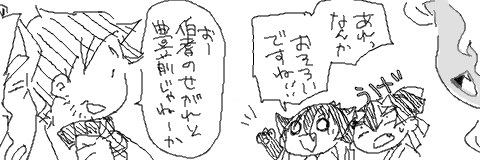 あれっ
なんか
おそろい
ですね!!
うげ
おー
伯耆のせがれと
豊前じゃねーか